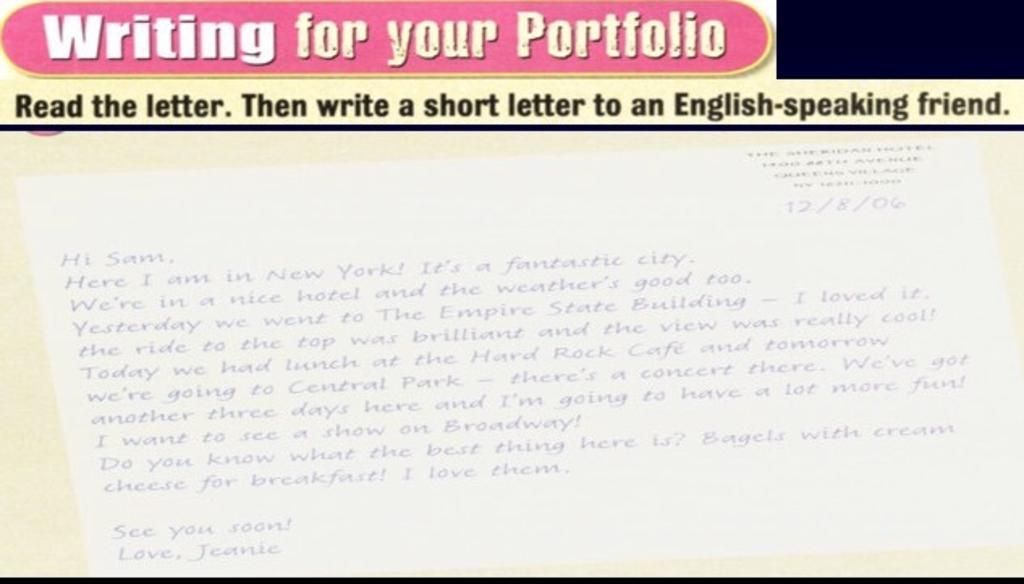 Writing for your Portfolio
Read the letter. Then write a short letter to an English-speaking friend.
THE SHERIDAN HOTEL
AVENUE
QUEENS VILLAGE
NY
12/8/06
Hi Sam,
Here I am in New York! It's a fantastic city.
We're in a nice hotel and the weather's good too.
Yesterday we went to The Empire State Building – I loved it.
the ride to the top was brilliant and the view was really cool!
Today we had lunch at the Hard Rock Café and tomorrow
we're going to Central Park – there's a concert there. We've got
another three days here and I'm going to have a lot more fun!
I want to see a show on Broadway!
Do you know what the best thing here is? Bagels with cream
cheese for breakfast! I love them.
See you soon!
Love, Jeanie